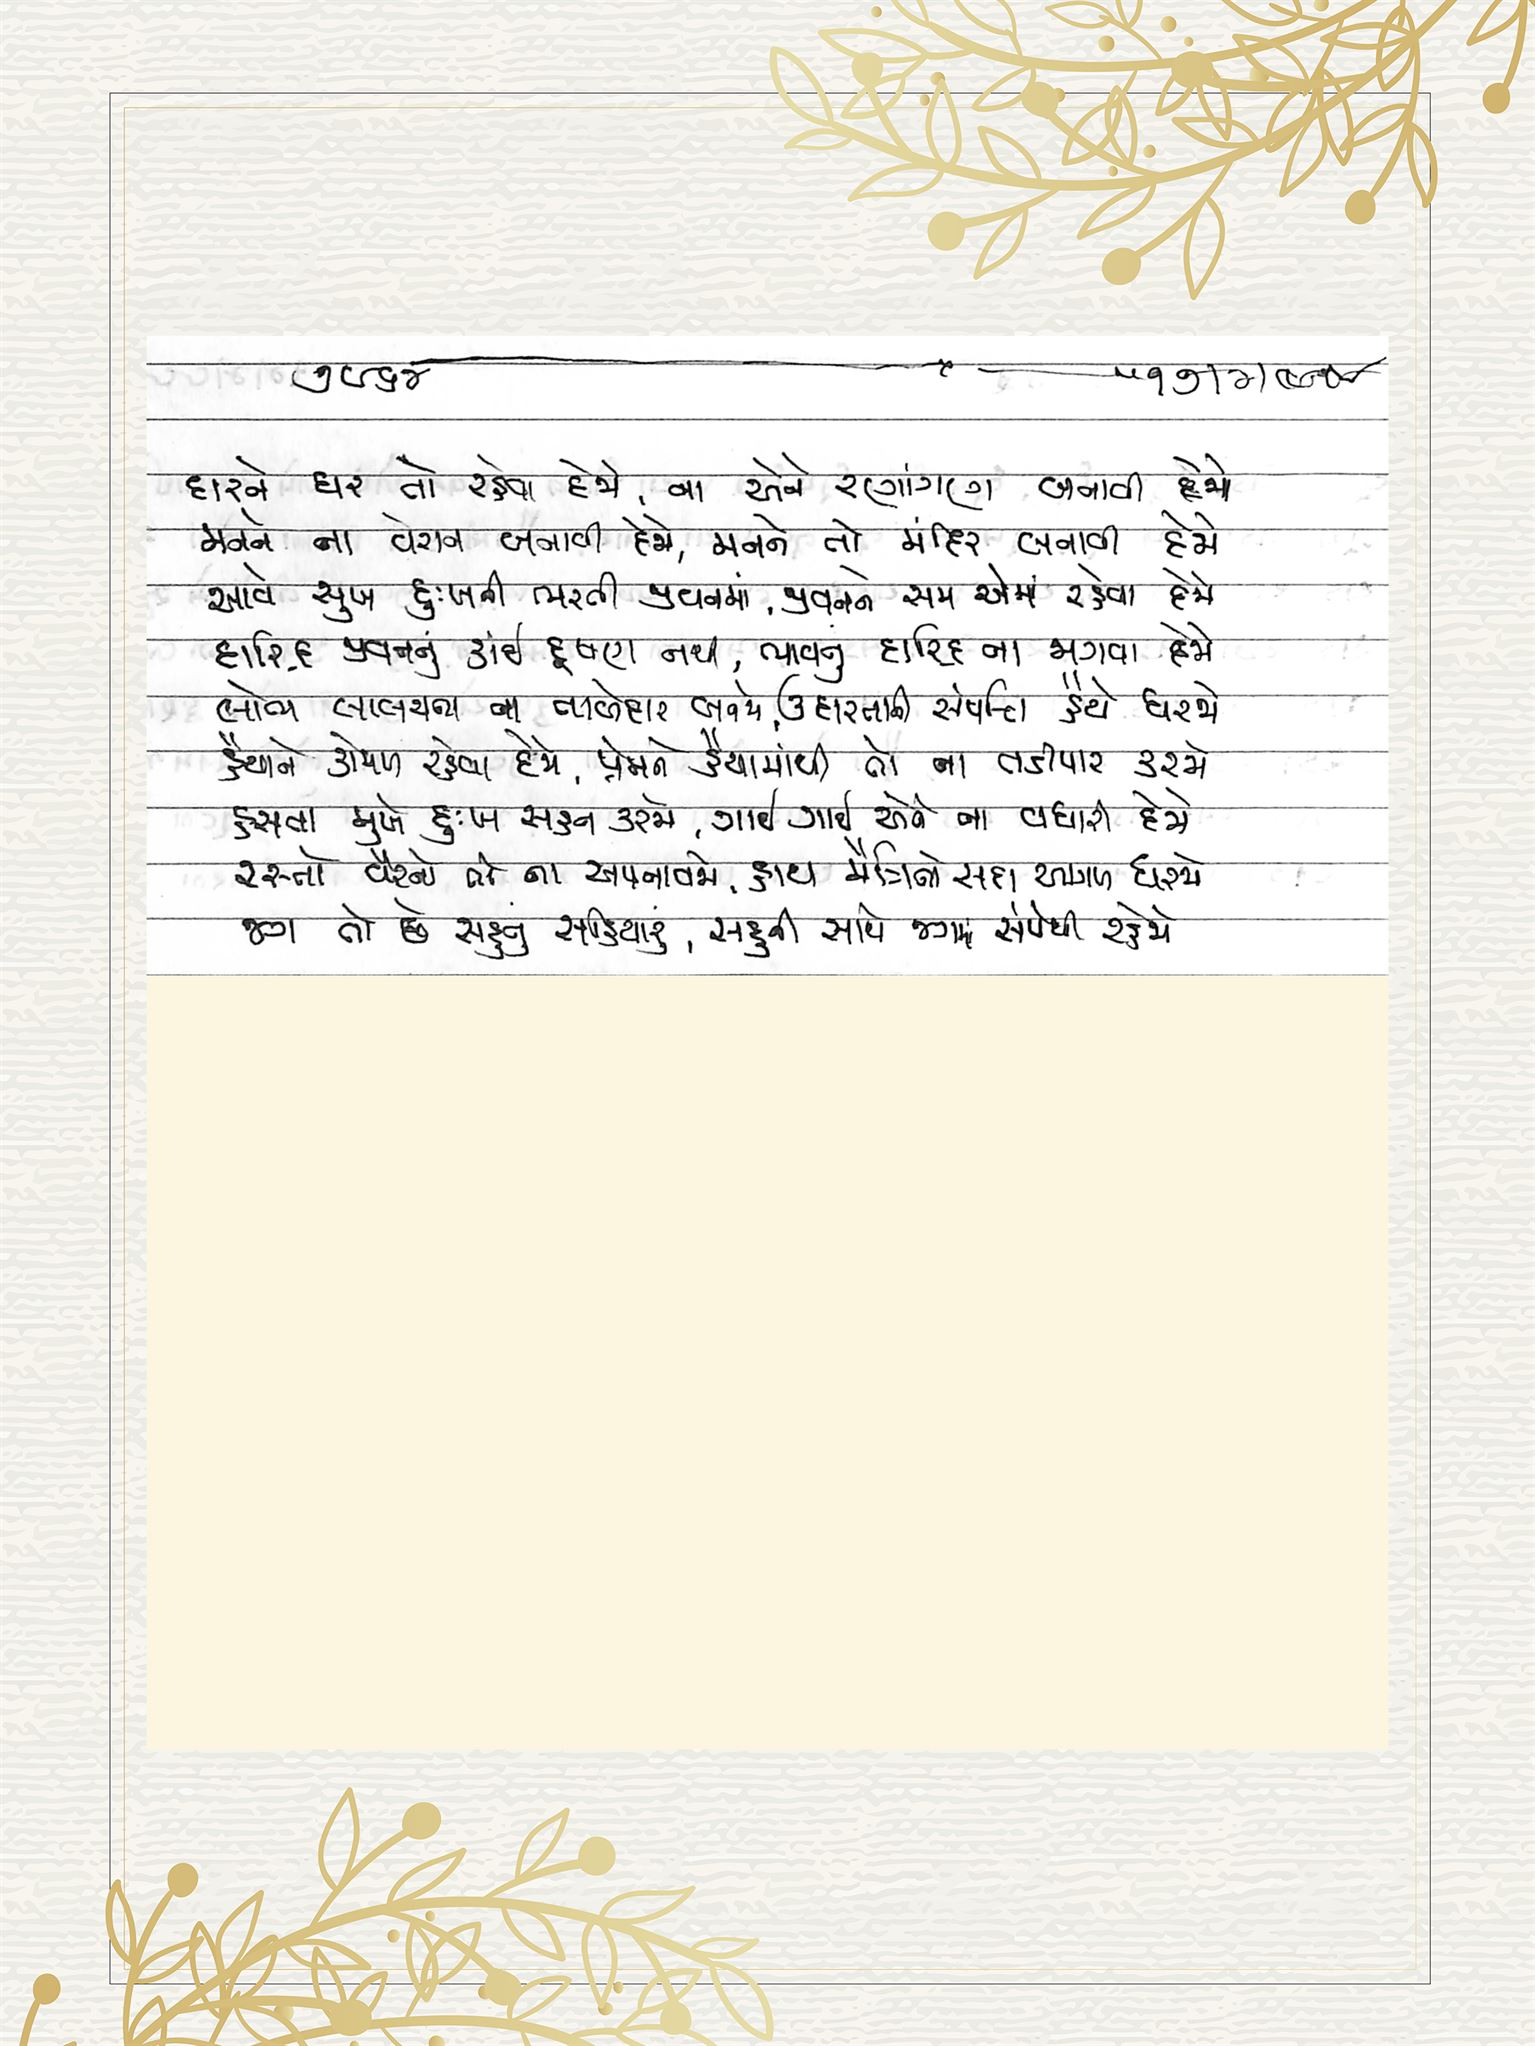 ઘરને ઘર તો રહેવા દેજે, ના એને રણાંગણ બનાવી દેજે
મનને ના વેરાન બનાવી દેજે, મનને તો મંદિર બનાવી દેજે
આવે સુખ દુઃખની ભરતી જીવનમાં, જીવનને સમ એમાં રહેવા દેજે
દારિદ્ર જીવનનું કાંઈ દૂષણ નથી, ભાવનું દારિદ્ર ના જાગવા દેજે
લોભ લાલચનો ના તાબેદાર બનજે, ઉદારતાની સંપત્તિ હૈયે ધરજે
હૈયાને કોમળ રહેવા દેજે, પ્રેમને હૈયામાંથી તો ના તડીપાર કરજે
હસતા મુખે દુઃખ સહન કરજે, ગાઈ ગાઈ એને ના વધારી દેજે
રસ્તો વૈરનો તો ના અપનાવજે, હાથ મૈત્રિનો સદા આગળ ધરજે
જગ તો છે સહુનું સહિયારું, સહુની સાથે જગમાં સંપથી રહેજે